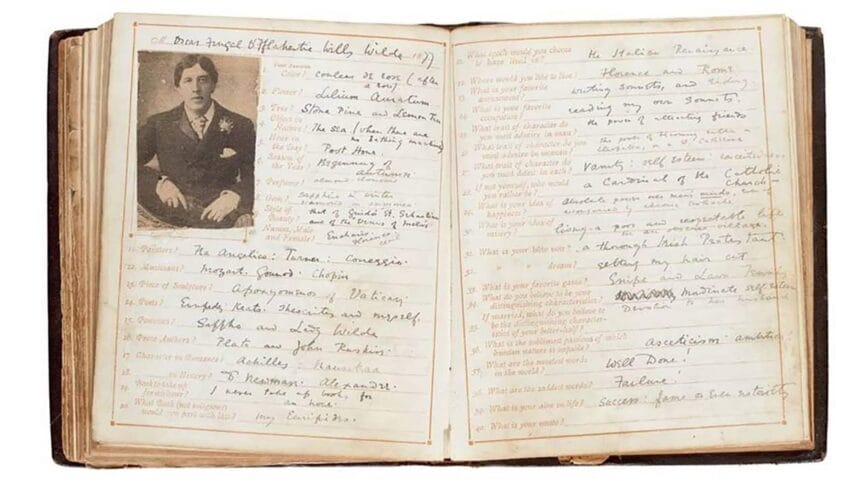 Oscar Fingal O'Flahertie Wills Wilde 1877
1. Your Favorite
Color? couleur de rose (after
a row)
2. Flower? Lilium Auratum
3. Tree? Stone Pine and Lemon Tree
4. Object in
Nature? The Sea (when there are
no bathing machines)
5. Hour in
the Day? Post Hour
6. Season of
the Year? Beginning of
autumn
7. Perfume? almond
8. Gem? sapphire in winter
diamond in summer
9. Style of
Beauty? that of Guido's St. Sebastian
and of the Venus of Melos
10. Names, Male
and Female?
11. Painters? Fra Angelico: Turner: Correggio.
12. Musicians? Mozart. Gounod. Chopin
13. Piece of Sculpture? Apoxyomenos of Vatican:
14. Poets? Euripides: Keats: Theocritus and myself.
15. Poetesses? Sappho and Lady Wilde
16. Prose Authors? Plato and John Ruskin:
17. Character in Romance? Achilles: Nausikaa
18. in History? Newman. Alexander.
19. Book to take up
for an hour? I never take up books for
an hour.
20. What Book (not religious)
would you part with last? my Euripides.
21. What epoch would you choose
to have lived in? The Italian Renaissance
22. Where would you like to live? Florence and Rome
23. What is your favorite
amusement? writing sonnets, and riding.
24. What is your favorite
occupation? reading my own Sonnets.
25. What trait of character do
you most admire in man? the power of attracting friends
26. What trait of character do
you most admire in woman? the power of becoming either a
Cleopatra, or a St. Catherine
27. What trait of character do
you most detest in each? Vanity: self esteem: conceitedness
28. If not yourself, who would
you rather be? a Cardinal of the Catholic
Church
29. What is your idea of
happiness? absolute power over men's minds, even if
accompanied by chronic toothache
30. What is your idea of
misery? living a poor and respectable life
in an obscure village.
31. What is your bête noir? a thorough Irish Protestant.
32. " " " dream? getting my hair cut
33. What is your favorite game? Snipe and Lawn Tennis
34. What do you believe to be your
distinguishing characteristics? inordinate self esteem
35. If married, what do you believe to
be the distinguishing character-
istics of your better-half? Devotion to her husband
36. What is the sublimest passion of which
human nature is capable? Asceticism: ambition
37. What are the sweetest words
in the world? Well Done!
38. What are the saddest words? Failure!
39. What is your aim in life? Success: fame or even notoriety
40. What is your motto?